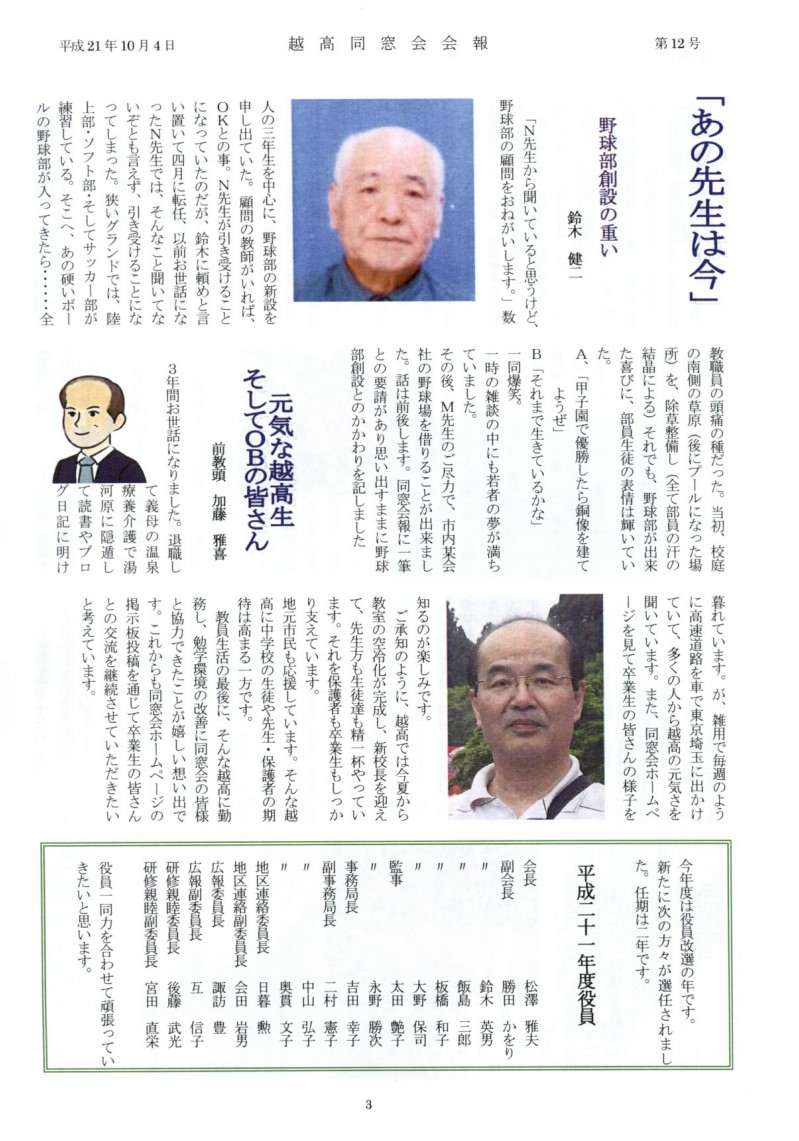 平成21年10月4日
越高同窓会会報
第12号
「あの先生は今」
野球部創設の重い
鈴木 健二
「N先生から聞いていると思うけど、
野球部の顧問をおねがいします。」数
人の三年生を中心に、野球部の新設を
申し出ていた。顧問の教師がいれば、
OKとの事。N先生が引き受けること
になっていたのだが、鈴木に頼めと言
い置いて四月に転任、以前お世話にな
ったN先生では、そんなこと聞いてな
いぞとも言えず、引き受けることにな
ってしまった。狭いグランドでは、陸
上部・ソフト部・そしてサッカー部が
練習している。そこへ、あの硬いボー
ルの野球部が入ってきたら・・・・・全
教職員の頭痛の種だった。当初、校庭
の南側の草原（後にプールになった場
所）を、除草整備し（全て部員の汗の
結晶による）それでも、野球部が出来
た喜びに、部員生徒の表情は輝いてい
た。
A、「甲子園で優勝したら銅像を建て
ようぜ」
B「それまで生きているかな」
一同爆笑。
一時の雑談の中にも若者の夢が満ち
ていました。
その後、M先生のご尽力で、市内某会
社の野球場を借りることが出来まし
た。話は前後します。同窓会報に一筆
との要請があり思い出すままに野球
部創設とのかかわりを記しました
元気な越高生
そしてOBの皆さん
前教頭 加藤 雅喜
3年間お世話になりました。退職し
て義母の温泉
療養介護で湯
河原に隠遁し
て読書やブロ
グ日記に明け
暮れています。が、雑用で毎週のよう
に高速道路を車で東京埼玉に出かけ
ていて、多くの人から越高の元気さを
聞いています。また、同窓会ホームペ
ージを見て卒業生の皆さんの様子を
知るのが楽しみです。
ご承知のように、越高では今夏から
教室の空冷化が完成し、新校長を迎え
て、先生方も生徒達も精一杯やってい
ます。それを保護者も卒業生もしっか
り支えています。
地元市民も応援しています。そんな越
高に中学校の生徒や先生・保護者の期
待は高まる一方です。
教員生活の最後に、そんな越高に勤
務し、勉学環境の改善に同窓会の皆様
と協力できたことが嬉しい想い出で
す。これからも同窓会ホームページの
掲示板投稿を通じて卒業生の皆さん
との交流を継続させていただきたい
と考えています。
今年度は役員改選の年です。
新たに次の方々が選任されまし
た。任期は二年です。
平成二十一年度役員
会長 松澤 雅夫
副会長 勝田 かをり
〃 鈴木 英男
〃 飯島 三郎
〃 板橋 和子
〃 大野 保司
監事 太田 艶子
〃 永野 勝次
事務局長 吉田 幸子
副事務局長 二村 憲子
〃 中山 弘子
〃 奥貫 文子
地区連絡委員長 日暮 勲
地区連絡副委員長 会田 岩男
広報委員長 諏訪 豊
広報副委員長 互 信子
研修親睦委員長 後藤 武光
研修親睦副委員長 宮田 直栄
役員一同力を合わせて頑張ってい
きたいと思います。
3